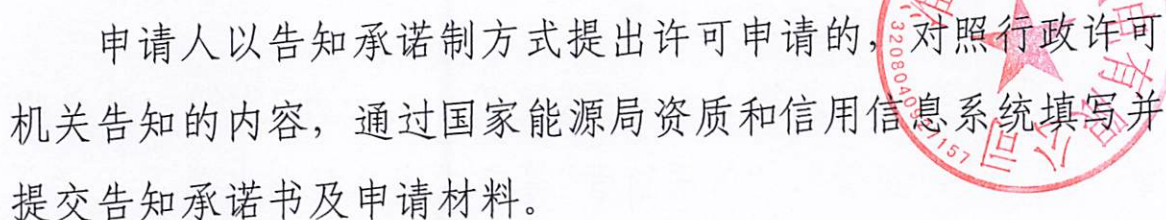 申请人以告知承诺制方式提出许可申请的，对照行政许可
机关告知的内容，通过国家能源局资质和信用信息系统填写并
提交告知承诺书及申请材料。
有限公司